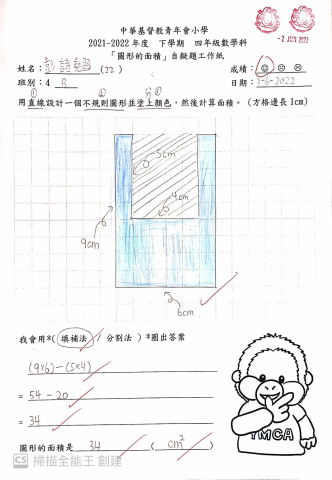 中華基督教青年會小學
2021-2022年度 下學期 四年級數學科
「圖形的面積」自擬題工作紙
-2 JUN 2022
姓名： 彭詩 (22)
成績：
班別：4 B
日期：1-6-2022
① ② 分③
用直線設計一個不規則圖形並塗上顏色，然後計算面積。（方格邊長1cm）
5cm
4cm
9cm
6cm
我會用*（填補法 / 分割法）*圈出答案
(9x6)-(5x4)
= 54 - 20
= 34
圖形的面積是 34 ( cm² )
YMCA
CS 掃描全能王 創建